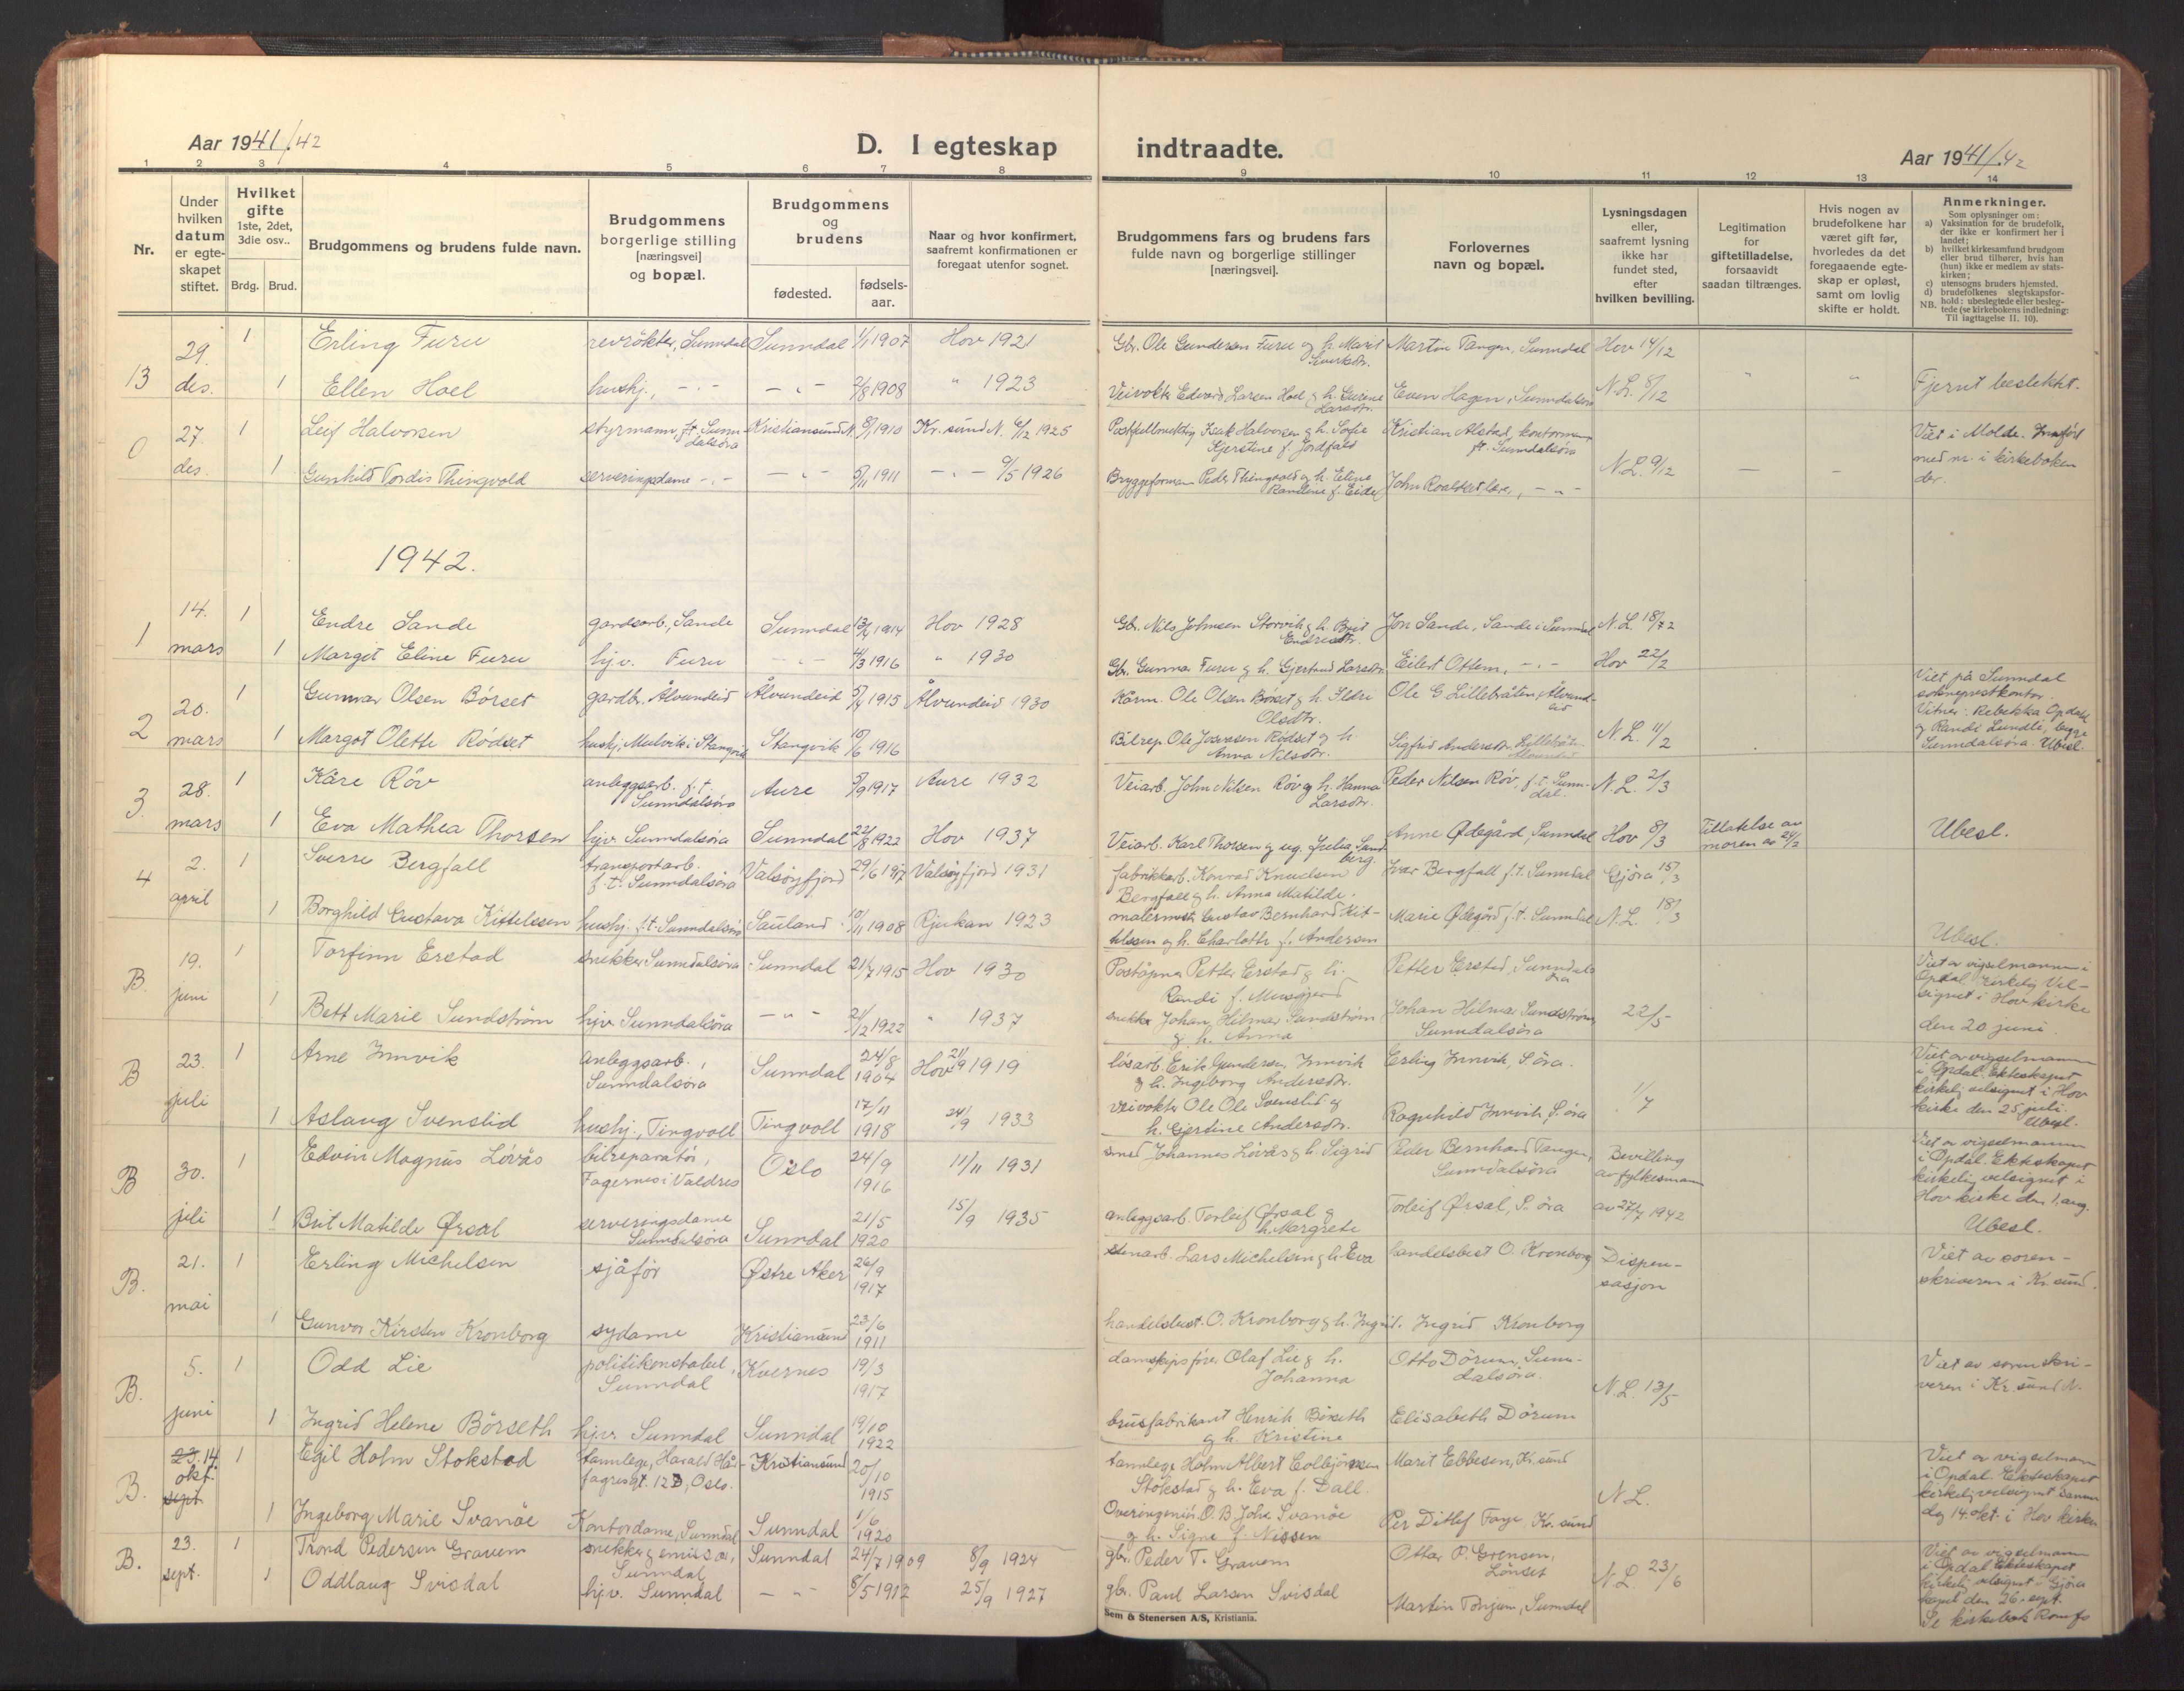 Aar 1941/42
D. I egteskap indtraadte.
Aar 1941/42
1 2 3 4 5 6 7 8 9 10 11 12 13 14
Nr.
Under hvilken datum er egte-skapet stiftet.
Hvilket gifte 1ste, 2det, 3die osv..
Brdg. Brud.
Brudgommens og brudens fulde navn.
Brudgommens borgerlige stilling [næringsvei] og bopæl.
Brudgommens og brudens
fødested.
fødsels-aar.
Naar og hvor konfirmert, saafremt konfirmationen er foregaat utenfor sognet.
Brudgommens fars og brudens fars fulde navn og borgerlige stillinger [næringsvei].
Forlovernes navn og bopæl.
Lysningsdagen eller, saafremt lysning ikke har fundet sted, efter hvilken bevilling.
Legitimation for giftetilladelse, forsaavidt saadan tiltrænges.
Hvis nogen av brudefolkene har været gift før, hvorledes da det foregaaende egte-skap er opløst, samt om lovlig skifte er holdt.
Anmerkninger.
Som oplysninger om:
a) Vaksination for de brudefolk, der ikke er konfirmert her i landet;
b) hvilket kirkesamfund brudgom eller brud tilhører, hvis han (hun) ikke er medlem av stats-kirken;
c) utensogns bruders hjemsted.
d) brudefolkenes slegtskapsfor-hold: ubeslegtede eller besleg-tede (se kirkebokens indledning: Til iagttagelse II. 10).
NB.
13 29. des. 1 Erling Furu revrökter, Sunndal Sunndal 1/1 1907 Hov 1921 Gbr. Ole Gundersen Furu og h. Marit Martin Tangen, Sunndal Hov 14/12
1 Ellen Hoel hushj., -"- -"- 2/8 1908 " 1923 Veivokter Edvard Larsen Hoel og h. Gurine Larsdtr. Even Hagen, Sunndalsøra N.L. 8/12 " " Fjernt beslektet.
0 27. des. 1 Leif Halvorsen styrmann, f.t. Sunndalsöra Kristiansund N. 1910 Kr. sund N. 6/12 1925 Isak Halvorsen og h. Sofie Kjerstine f. Jordfald Kristian Alstad, kontormann ft. Sunndalsöra Viet i Molde. Innfört med nr. i kirkeboken der.
1 Gunhild Tordis Thingvold serveringsdame -"- -"- 5/11 1911 -"- 9/5 1926 Bryggeformann Peder Thingvold og h. Eline Randine f. Eide John Roaldset, -"- N.L. 9/12 — —
1942.
1 14. mars 1 Endre Sande gardsarb., Sande Sunndal 13/4 1914 Hov 1928 Gbr. Nils Johnsen Storvik og h. Brit Endresdtr. Jon Sande, Sande i Sunndal N.L. 18/2
1 Margit Eline Furu hjv. Furu -"- 4/3 1916 " 1930 Gbr. Gunnar Furu og h. Gjertrud Larsdtr. Eilert Ottem, -"- Hov 22/2
2 20. mars 1 Gunnar Olsen Börset gardbr. Ålvundeid Ålvundeid 5/4 1915 Ålvundeid 1930 Kårm. Ole Olsen Börset og h. Ildri Olsdtr. Ole G. Lillebråten, Ålvundeid Viet på Sunndal sokneprestkontor. Vitner: Rebekka Opdahl og Randi Lundli, begge Sunndalsöra. Ubesl.
1 Margot Olette Rödset hushj. Mulvik i Stangvik Stangvik 10/6 1916 Bilrep. Ole Josevsen Rödset og h. Anna Nilsdtr. Sigfrid Andersdtr. Lillebråten N.L. 11/2
3 28. mars 1 Kåre Röv anleggsarb. f.t. Sunndalsöra Aure 5/9 1917 Aure 1932 Veiarb. John Nilsen Röv og h. Hanna Larsdtr. Peder Nilsen Röv, f.t. Sunndal. N.L. 2/3
1 Eva Mathea Thorsen hjv. Sunndalsöra Sunndal 22/8 1922 Hov 1937 Veiarb. Karl Thorsen og ug. Julia Sandberg. Anne Ødegård, Sunndal Hov 8/3 Tillatelse av moren av 24/2 Ubesl.
4 2. april 1 Sverre Bergfall transportarb. f.t. Sunndalsöra Valsöyfjord 29/6 1917 Valsöyfjord 1931 fabrikkarb. Konrad Knudsen Bergfall og h. Anna Matilde. Ivar Bergfall f.t. Sunndal Gjöra 15/3
1 Borghild Gustava Kittelssen hushj. f.t. Sunndalsöra Sauland 10/11 1908 Rjukan 1923 malermester Gustav Bernhard Kittelssen og h. Charlotte f. Andersen Marie Ødegård f.t. Sunndal N.L. 18/3 Ubesl.
B. 19. juni 1 Torfinn Erstad snekker Sunndalsöra Sunndal 21/7 1915 Hov 1930 Poståpner Petter Erstad og h. Randi f. Musgjerd Petter Erstad, Sunndalsöra Viet av vigselmannen i Opdal. Kirkelig Velsignet i Hov kirke den 20. juni.
1 Bett Marie Sundström hjv. Sunndalsöra -"- 21/12 1922 " 1937 snekker Johan Hilmar Sundström og h. Anna Johan Hilmar Sundström, Sunndalsöra 22/5
B 23. juli 1 Arne Innvik anleggsarb., Sunndalsöra Sunndal 24/8 1904 Hov 21/9 1919 lösarb. Erik Gundersen Innvik og h. Ingeborg Andersdtr. Erling Innvik, S. öra. Viet av vigselmannen i Opdal. Ekteskapet kirkelig velsignet i Hov kirke den 25. juli. Ubesl.
1 Aslaug Svenslid hushj., Tingvoll Tingvoll 17/11 1918 24/9 1933 veivokter Ole Ols. Svenslid og h. Gjertine Andersdtr. Ragnhild Innvik, S. öra 1/7
B 30. juli 1 Edvin Magnus Lövås bilreparatör, Fagernes i Valdres Oslo 24/9 1916 11/11 1931 smed Johannes Lövås og h. Sigrid Peder Bernhard Tangen, Sunndalsöra Bevilling av fylkesmann av 27/7 1942 Viet av vigselmannen i Opdal. Ekteskapet kirkelig velsignet i Hov kirke den 1. aug. Ubesl.
1 Brit Matilde Ørsal serveringsdame Sunndalsöra Sunndal 21/5 1920 15/9 1935 anleggsarb. Torleif Ørsal og h. Margrete Torleif Ørsal, S. öra
B. 21. mai 1 Erling Michelsen sjåför Østre Aker 26/9 1917 stenarb. Lars Michelsen og h. Eva handelsbest. O. Kronborg Dispensasjon Viet av sorenskriveren i Kr. sund.
1 Gunvor Kirsten Kronborg sydame Kristiansund 23/6 1911 handelsbest. O. Kronborg og h. Ingrid. Ingrid Kronborg
B. 5. juni 1 Odd Lie politikonstabel, Sunndal Kvernes 19/3 1917 damskipsförer Olaf Lie og h. Johanna Otto Dörum, Sunndalsöra. N.L. 13/5 Viet av sorenskriveren i Kr. sund N.
1 Ingrid Helene Börseth hjv. Sunndal Sunndal 19/10 1922 brusfabrikant Henrik Börseth og h. Kristine Elisabeth Dörum
B. 23. 14. okt. sept. 1 Egil Holm Stokstad tannlege, Harald Hårfagresgt. 12 D, Oslo. Kristiansund 20/10 1915 tannlege Holm Albert Colbjörnsen Stokstad og h. Eva f. Dall. Marit Ebbesen, Kr. sund Viet av vigselmann i Opdal. Ekteskapet kirkelig velsignet samme dag 14. okt. i Hov kirke.
1 Ingeborg Marie Svanöe Kontordame, Sunndal Sunndal 1/6 1920 Overingeniör O.B. Johs Svanöe og h. Signe f. Nissen Per Ditlef Faye, Kr. sund N.L.
B. 23. sept. 1 Trond Pedersen Gravem snekker og emissær, Sunndal Sunndal 24/7 1909 8/9 1924 gbr. Peder T. Gravem Ottar P. Grensen, Lönset N.L. 23/6 Viet av vigselmann i Opdal. Ekteskapet kirkelig velsignet i Gjöra kapel den 26. sept. Se kirkebok Romfo
1 Oddlaug Svisdal hjv. Sunndal -"- 8/5 1912 25/9 1927 gbr. Paul Larsen Svisdal Martin Tonjum, Sunndal
Sem & Stenersen A/S, Kristiania.